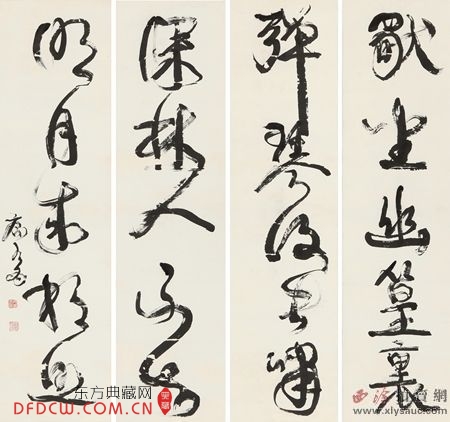 獨坐幽篁裏
彈琴復長嘯
深林人不知
明月來相照
东方典藏网
DFDCW.COM.CN
西泠拍賣網
www.xlysauc.com